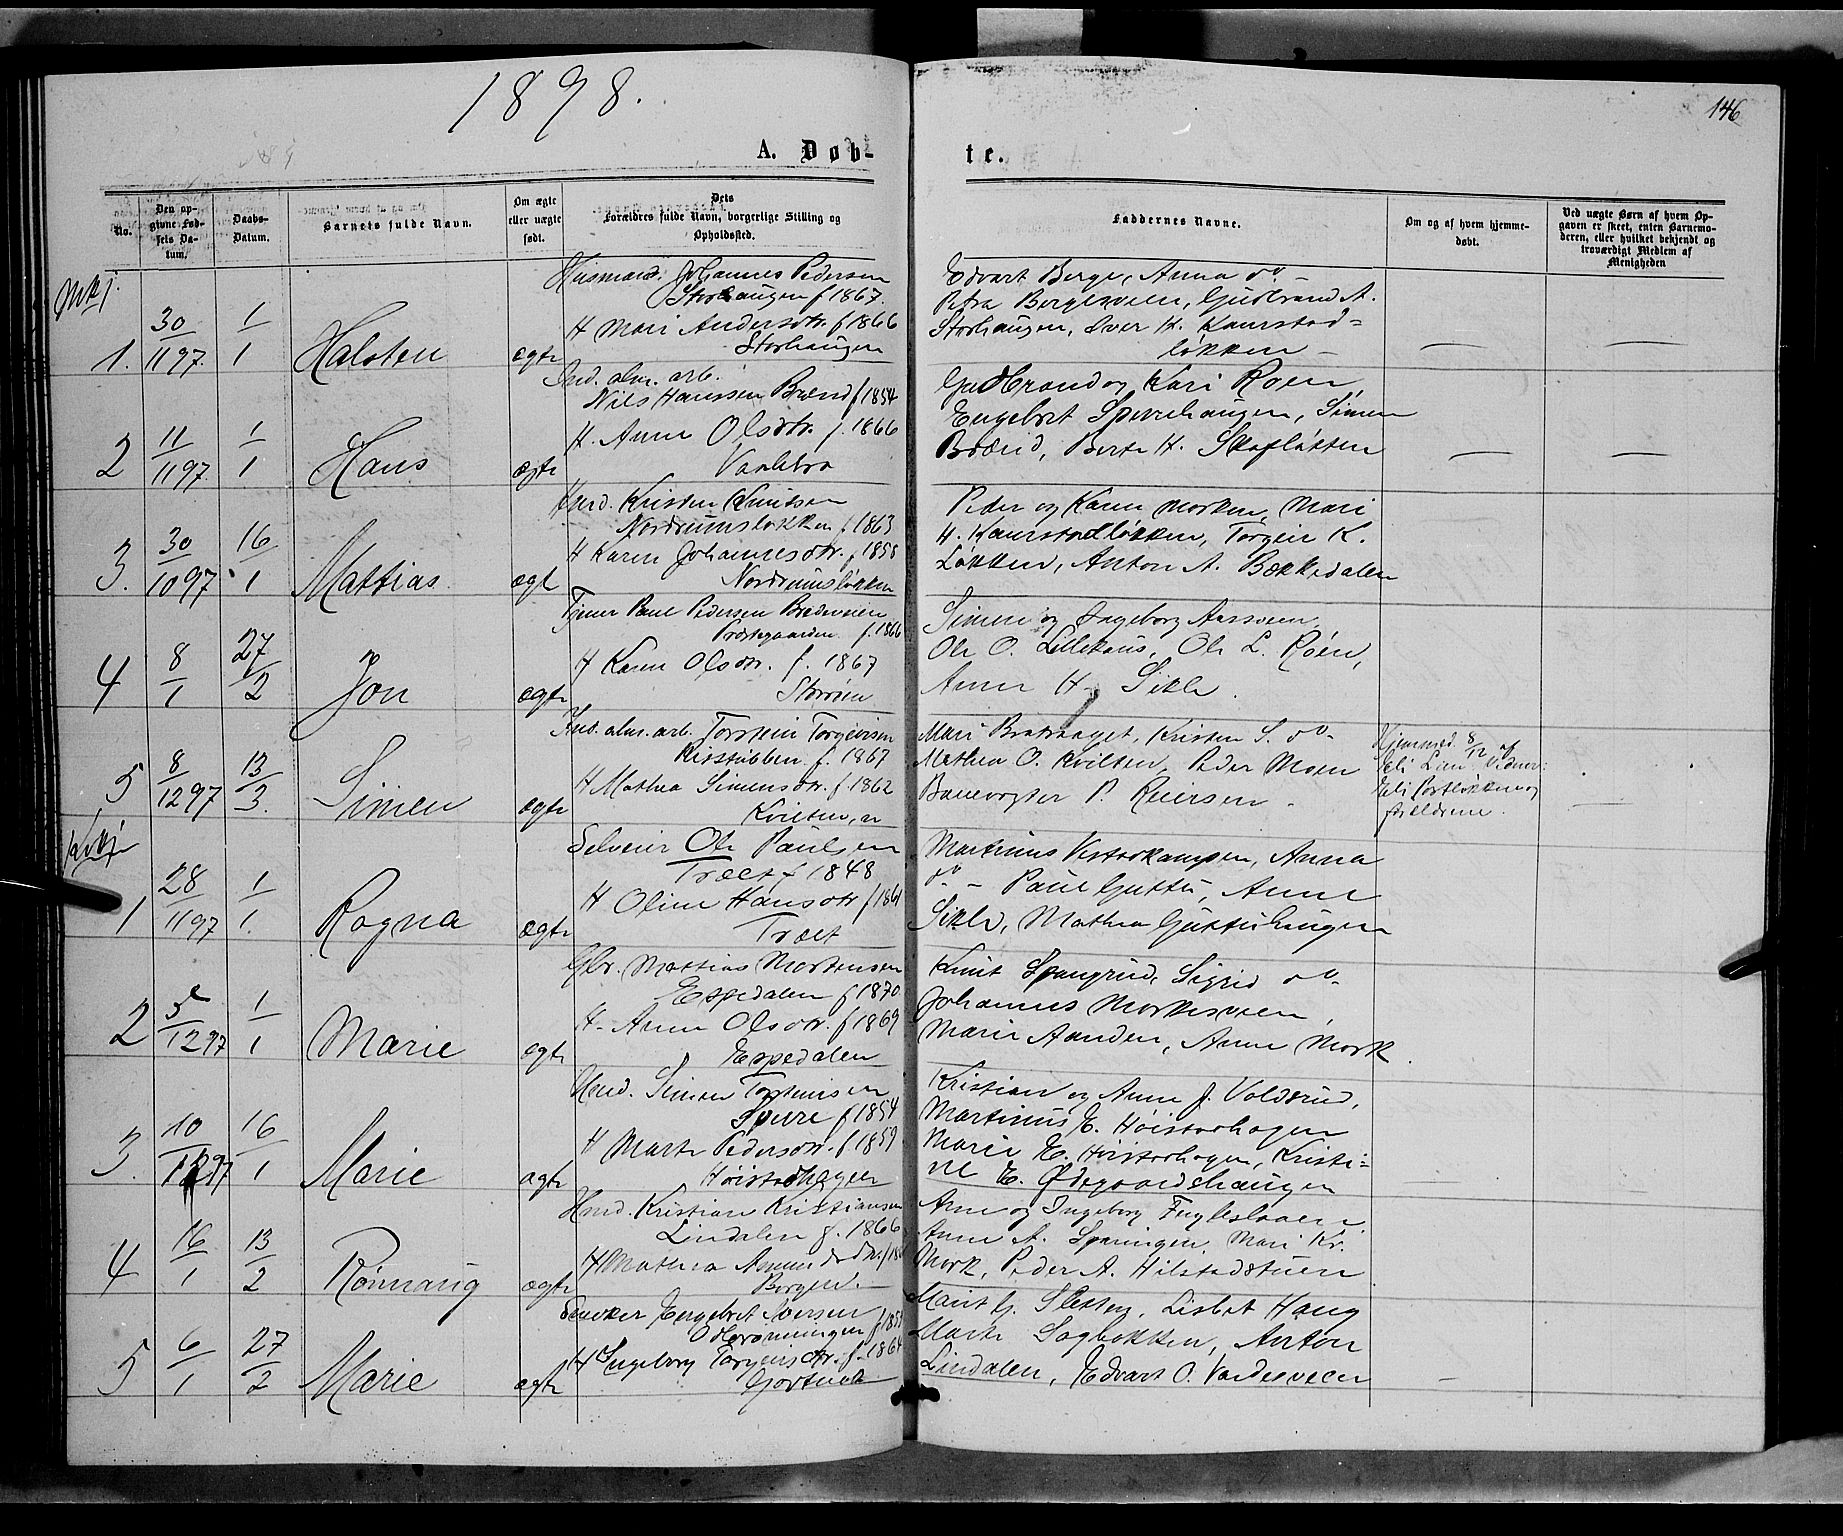 1898.
146
A. Døb-
te.
No.
Den op-
givne Fød-
sels Da-
tum.
Daabs-
Datum.
Barnets fulde Navn.
Om ægte
eller uægte
født.
Dets
Forældres fulde Navn, borgerlige Stilling og
Opholdssted.
Faddernes Navne.
Om og af hvem hjemme-
døbt.
Ved uægte Børn af hvem Op-
gaven er skeet, enten Barnemo-
deren, eller hvilket bekjendt og
troværdigt Medlem af
Menigheden
Mkj.
1. 30/1197. 1/1 Halsten ægte
Husmand Johannes Pedersen
Storhaugen f 1867.
H Mari Andersdtr. f 1866
Storhaugen
Edvart Berge, Anna do -
Petra Bergesveen, Gudbrand A.
Storhaugen, Iver H. Kaurstad=
løkken - — —
2 11/1197. 1/1 Hans ægte
Ind. alm. arb.
Nils Hanssen Brænd f 1854
H. Anne Olsdtr. f. 1866
Gudbrand og Kari Roen
Engebret Sperrehaugen, Simen
Brænd, Berte H. Skafløtten — —
3. 30/1097. 16/1 Mattias. ægt
Hmd. Kristen Knutsen
Nordrumsløkken f 1863
H Karen Johannesdtr. f 1858
Nordrumsløkken
Peder og Karen Morken, Mari
H. Kaurstadløkken, Torgeir K.
Løkken, Anton A. Bækkedalen
4 8/1 27/2 Jon ægte
Tjener Paul Pedersen
Præstegaarden f. 1866
H Karen Olsdtr. f. 1867
Storøen
Simen og Ingeborg Aasveen
Ole O. Lillehaus, Ole L. Røen,
Anne H. Sikle.
5 8/1297 13/3. Simen ægte
Ind. alm. arb. Torstein Torgeirsen
Risstubben f. 1867
H Mathea Simensdtr. f 1862
Mari Brathaaget, Kristen S. do-
Mathea O. Kvilten, Peder Moen
Banevogter P. Reiersen -
Hjemmed. 8/12 af
Eli
forældrene. —
Kvkj
1 28/1197 1/1. Ragna ægte
Selveier Ole Paulsen
Træet f 1848
H Oline Hansdtr f 1861
Træet
Martinus Vesterkampen, Anna
do. - Paul Guttu, Anne
Sikle, Mathea Guttuhaugen
2 5/1297 1/1 Marie ægte
Gbr. Mattias Mortensen
Espedalen f 1870
H- Anne Olsdtr. f 1869
Espedalen
Knut Spangrud, Sigrid do-
Johannes Morkesveen,
Marie Aanden, Anne Mork.
3. 10/1297 16/1 Marie ægte
Hmd. Simen Torstensen
f 1854
H Marte Pedersdtr. f 1859
Høistadhagen
Kristian og Anne J. Voldsrud,
Martinus E. Høistadhagen
Marie E. Høistadhagen, Kristi=
ne E. Ødegaardshaugen
4 16/1 13/2 Rønnaug ægte
Hmd. Kristian Kristiansen
Lindalen f. 1866
H Mathea Amundsdtr.
Borgen. -
Arne og Ingeborg Fugleslaaen
Anne A. Spaningen, Mari Kr.
Mork, Peder A. Hilstadstuen
5 6/1 27/2 Marie ægte
Snekker Engebret Iversen
H Ingeborg Torgeirsdtr. f. 1864
Marit G. Sletten, Lisbet Haug
Marte Sagbakken, Anton
Lindalen, Edvart O. Vardesveen -